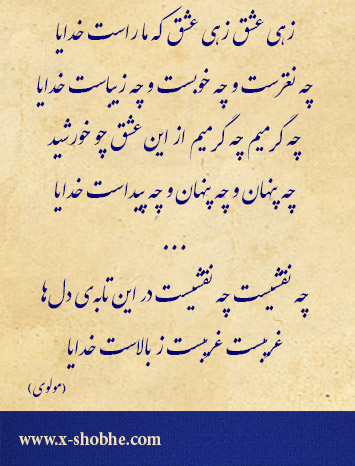 زهی عشق زهی عشق که ما راست خدایا
چه نغزست و چه خوبست و چه زیباست خدایا
چه گرمیم چه گرمیم از این عشق چو خورشید
چه پنهان و چه پنهان و چه پیداست خدایا
...
چه نقشیست چه نقشیست در این تابه‌ی دل‌ها
غریبست غریبست ز بالاست خدایا
(مولوی)
www.x-shobhe.com